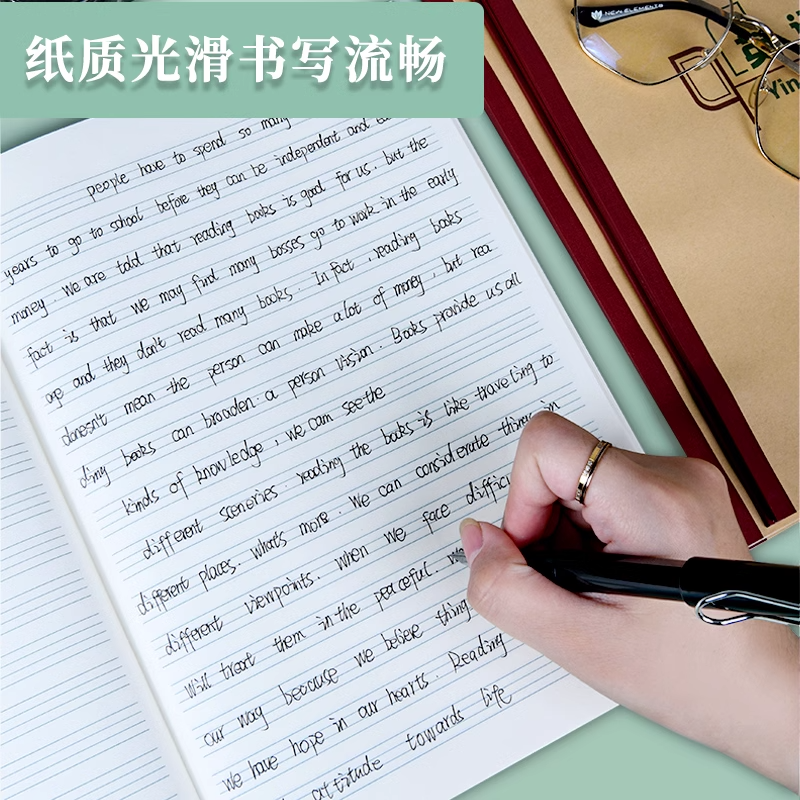 纸质光滑书写流畅
NEW ELEMENTS
Ying
people have to spend so many
years to go to school before they can be independent and
money. We are told that reading books is good for us. but the
fact is that we may find many bosses go to work in the early
age and they don't read many books. In fact, reading books
donesn't mean the person can make alot of money, but rea
ding books can broaden a person vision. Books provide us all
kinds of knowledge, we cam see the
different sceneries. reading the books is like traveling to
different places. what's more. We can considerate things in
different viewpoints. when we face
will treat them in the peaceful.
our way because we believe thing
we have hope in our hearts. Reading
attitude towards life